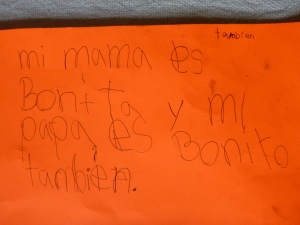 tambien
mi mama es
Bonita y mi
papa es Bonito
tambien.